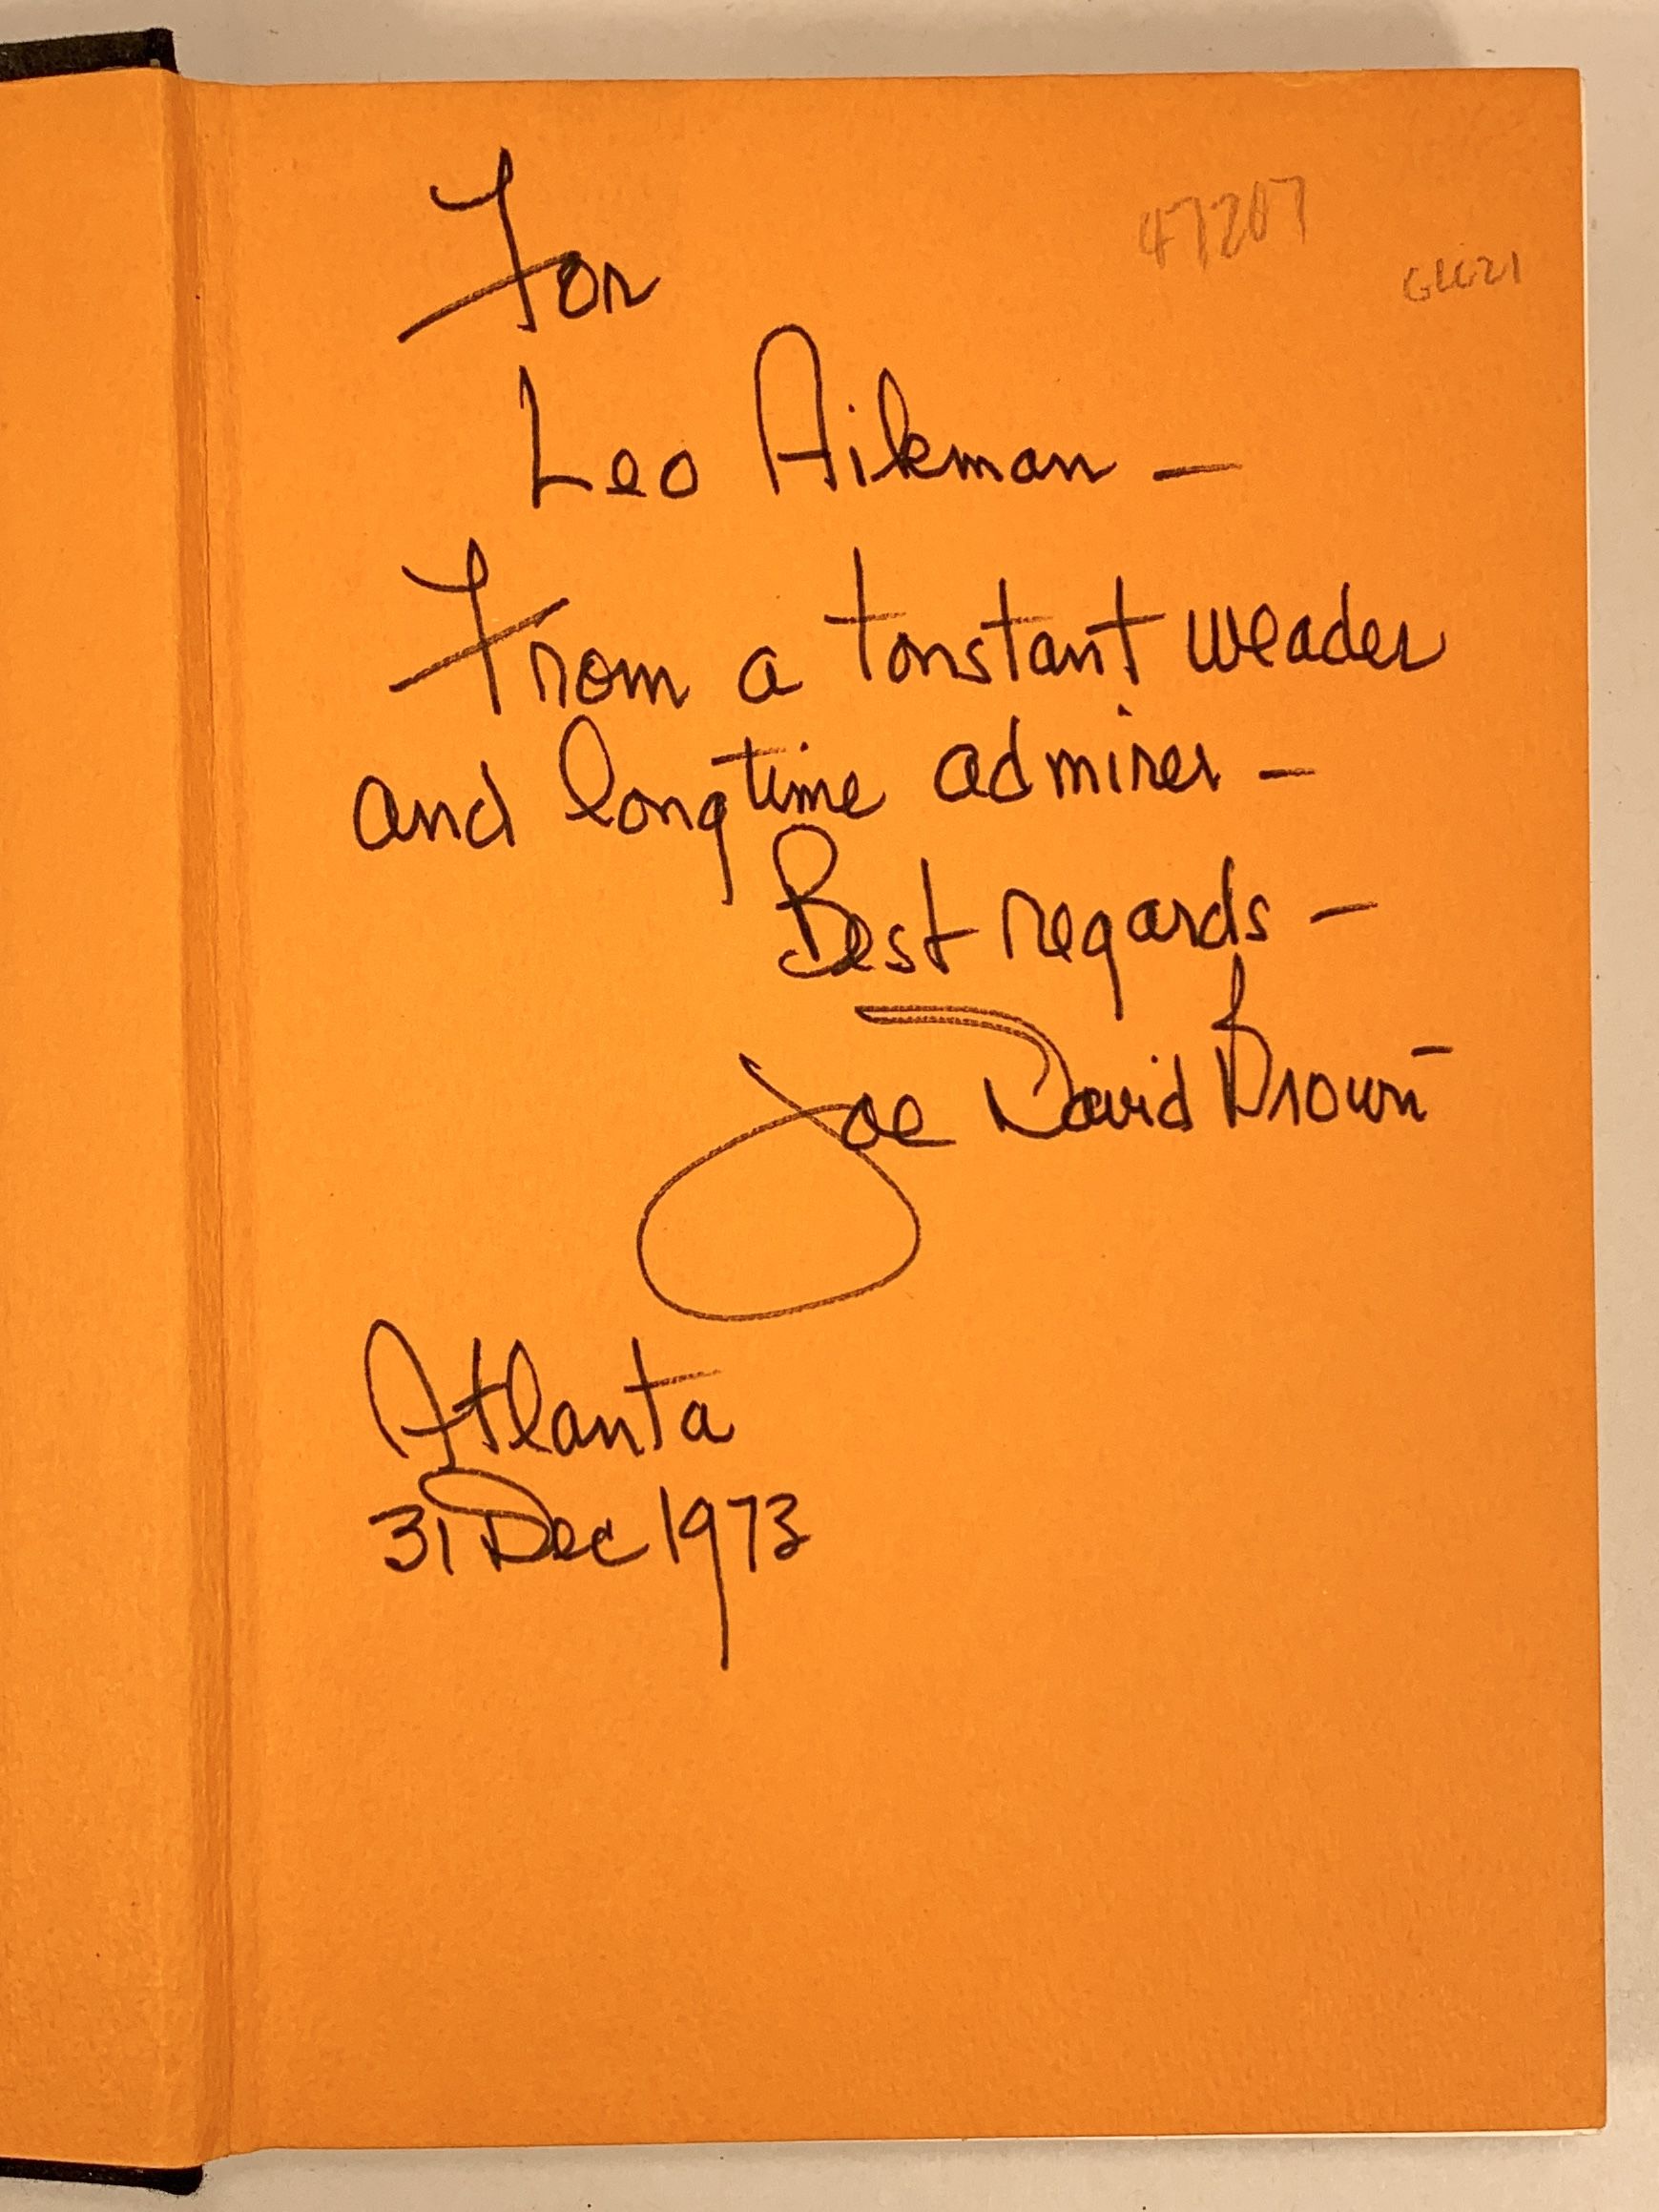 For
47207
GLG21
Leo Aikman —
From a tonstant weader
and longtime admirer —
Best regards —
Joe David Brown
Atlanta
31 Dec 1973